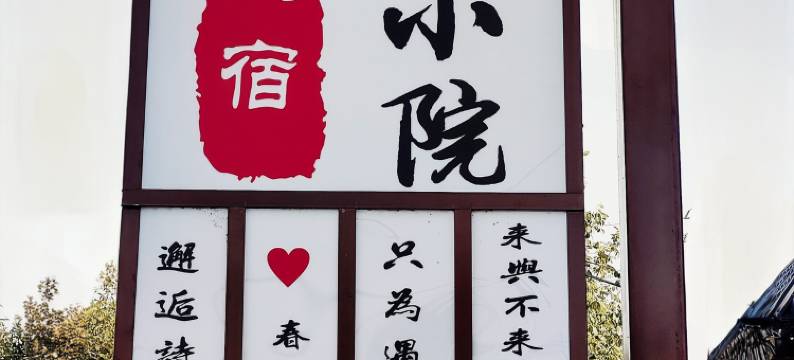 小院
宿
来與不来
只為遇
春
邂逅詩